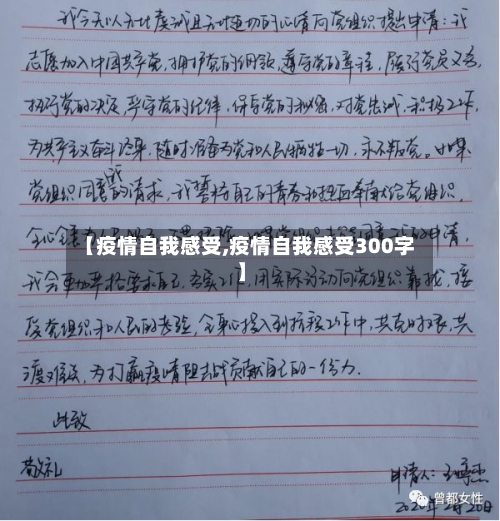 我今天以无比虔诚且无比迫切的心情向党组织提出申请：我
志愿加入中国共产党，拥护党的纲领，遵守党的章程，履行党员义务，
执行党的决定，严守党的纪律，保守党的秘密，对党忠诚，积极工作，
为共产主义奋斗终身，随时准备为党和人民牺牲一切，永不叛党。如果
党组织同意我的请求，我誓将自己的青春和热血奉献给党组织，
全心全意为人民
的申请，
【疫情自我感受,疫情自我感受300字
】
我会更加严格要求自己，踏实工作，用实际行动向党组织靠拢，接
受党组织和人民的考验，全身心投入到抗疫工作中，共克时艰，共
渡难关，为打赢疫情阻击战贡献自己的一份力。
此致
敬礼
申请人：王
曾都女性
2020年2月20日